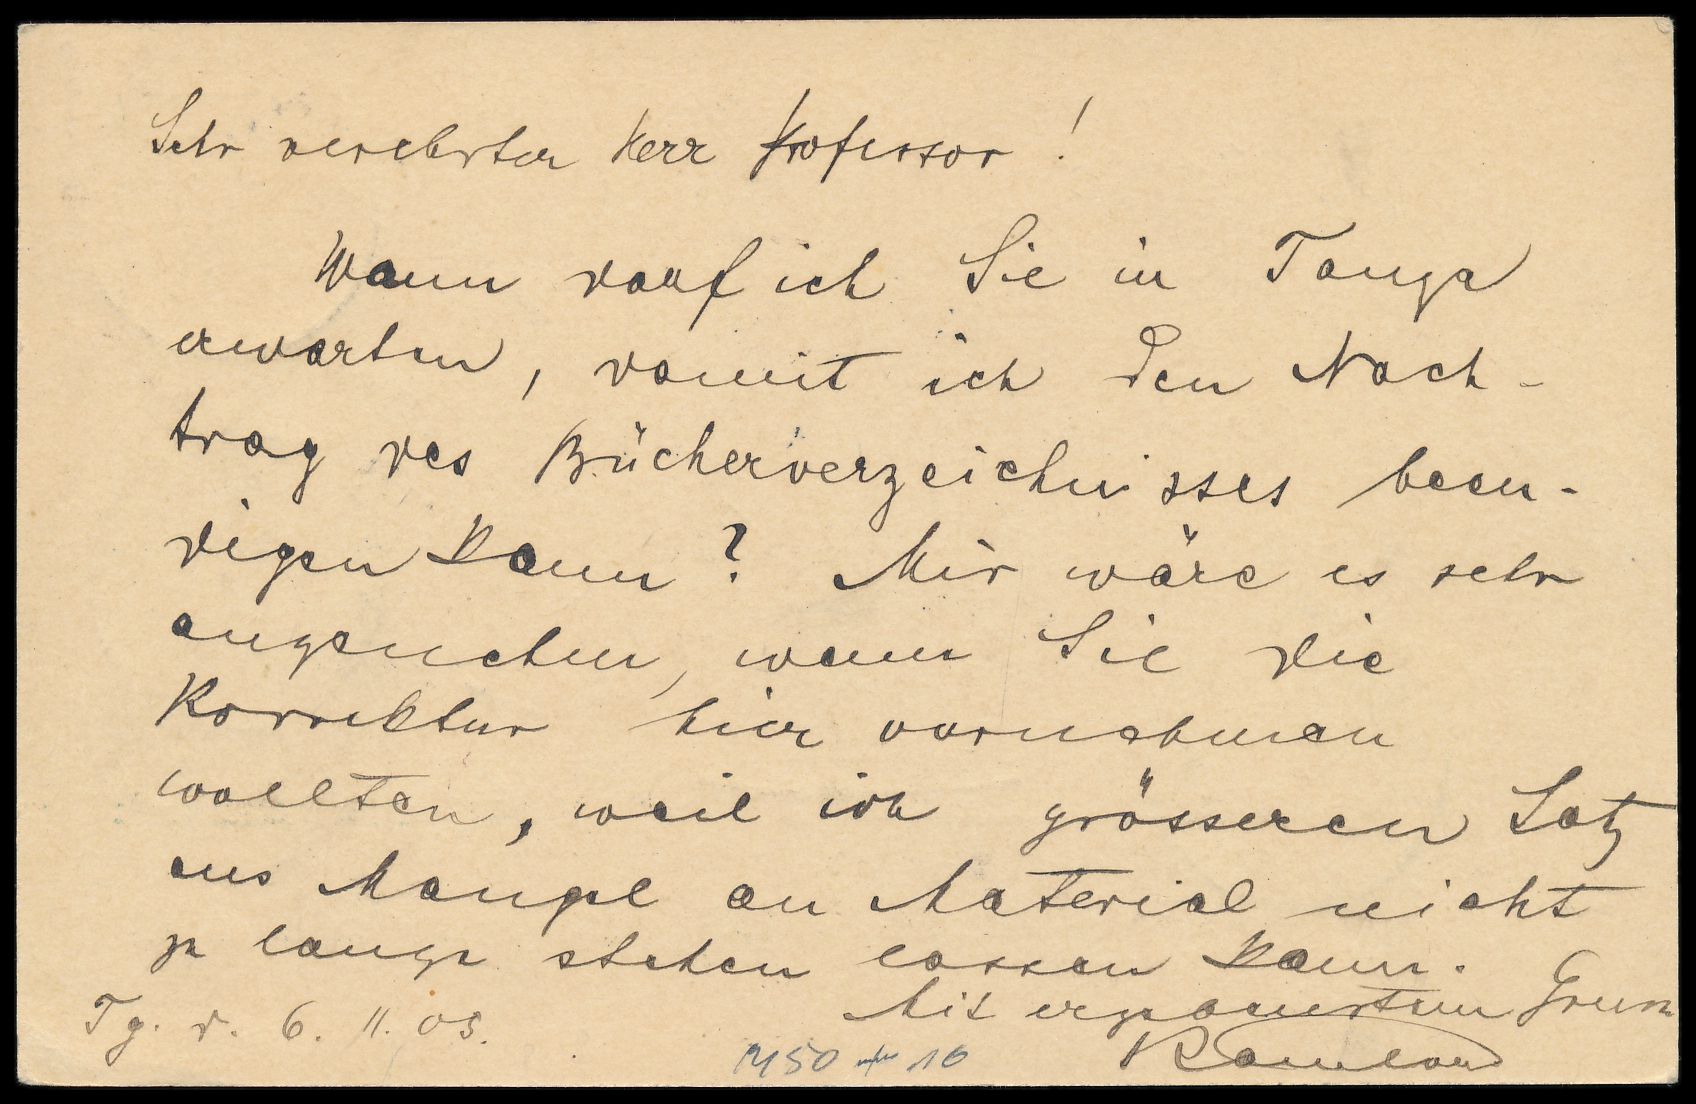 Sehr verehrter Herr Professor!
Wann darf ich Sie in Tanga
erwarten, damit ich den Nach-
trag des Bücherverzeichnisses been-
digen kann? Mir wäre es sehr
angenehm, wenn Sie die
Korrektur hier vornehmen
wollten, weil ich grösseren Satz
aus Mangel an Material nicht
zu lange stehen lassen kann.
Mit ergebenstem Gruss
Tg. d. 6. 11. 03.